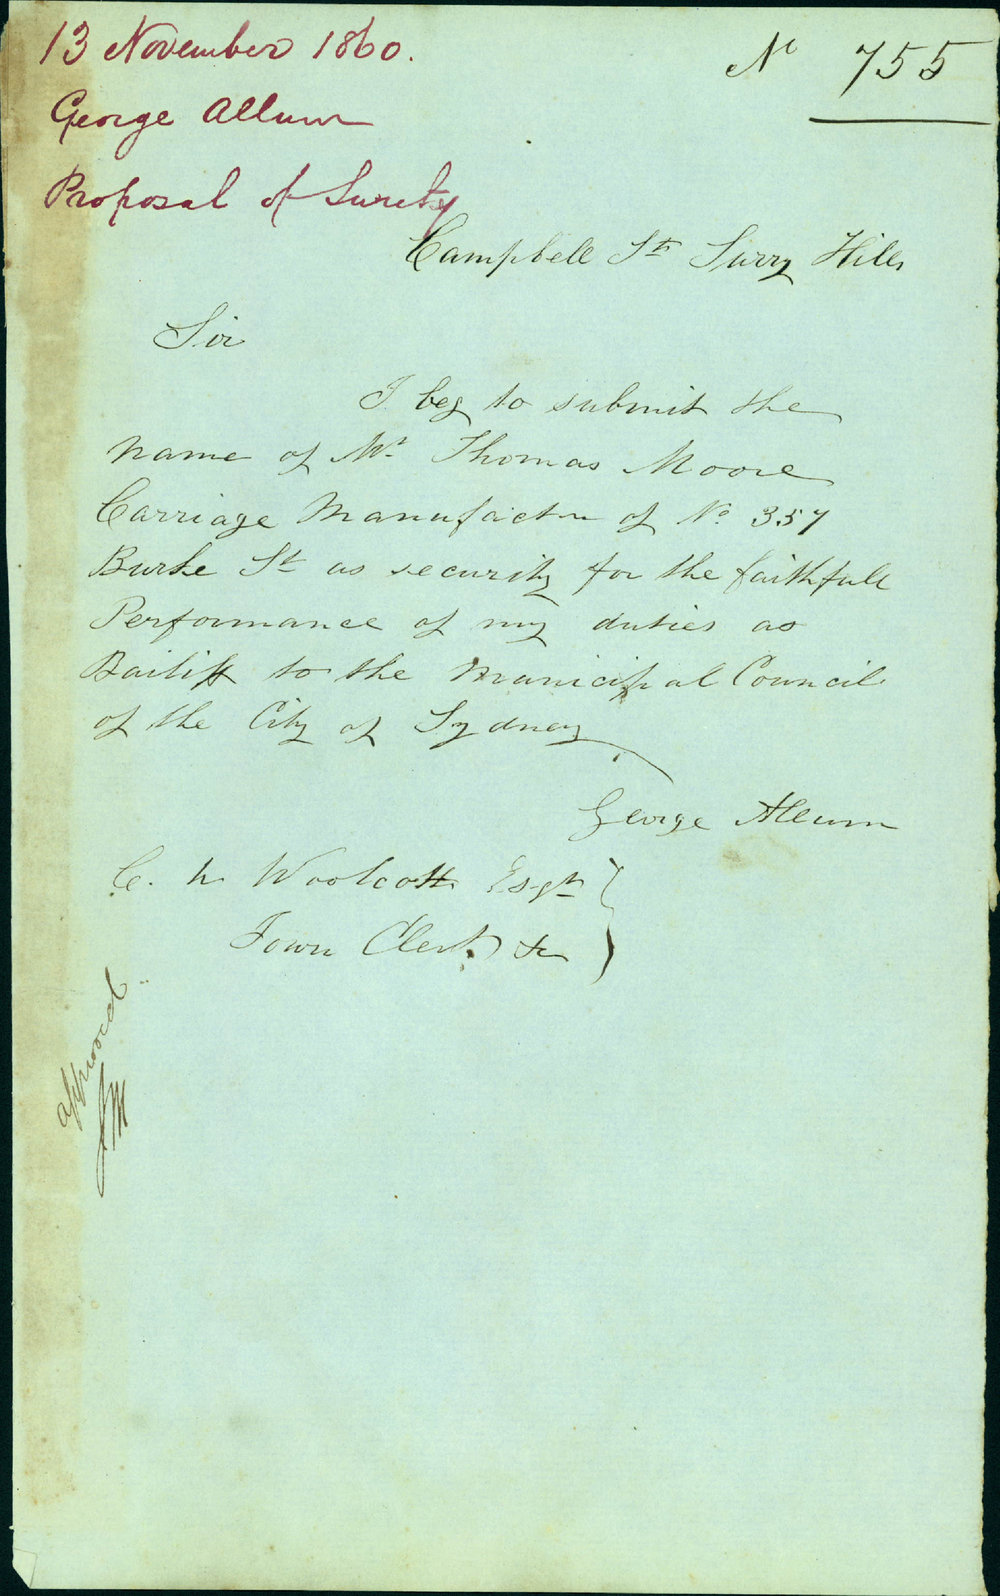 13 November 1860.
George Allum
Proposal of Surety
No 755
Campbell St Surry Hills
Sir
I beg to submit the
name of Mr Thomas Moore
Carriage Manufactur of No 357
Burke St as security for the faithfull
Performance of my duties as
Bailiff to the Municipal Council
of the City of Sydney
George Allum
C. H Woolcott Esqr
Town Clerk &c
approved
JM